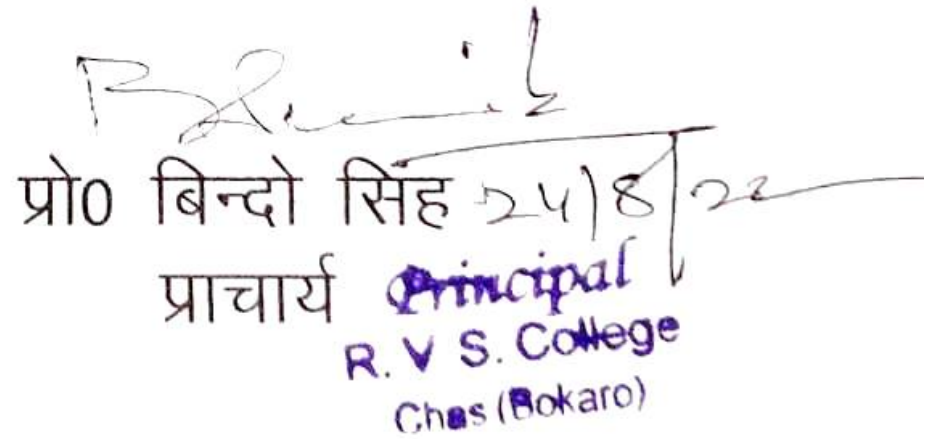 प्रो0 बिन्दो सिंह 24/8/22
प्राचार्य Principal
R. V S. College
Chas (Bokaro)